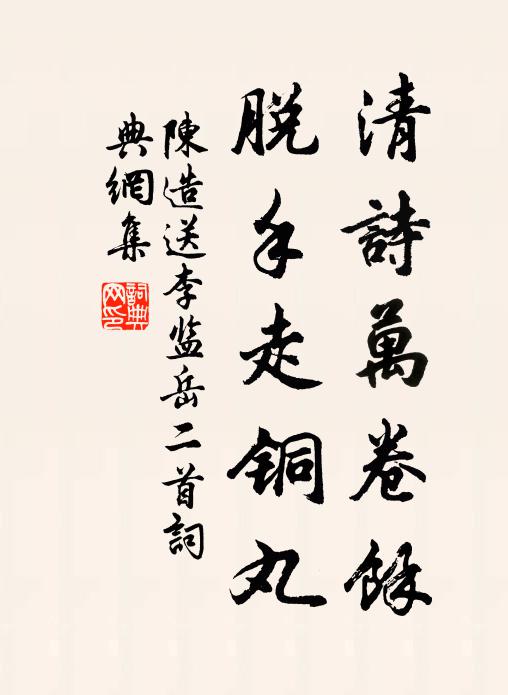 清詩萬卷餘
脫手走铜丸
陳造送李监岳二首詞
典網集
詞典网印